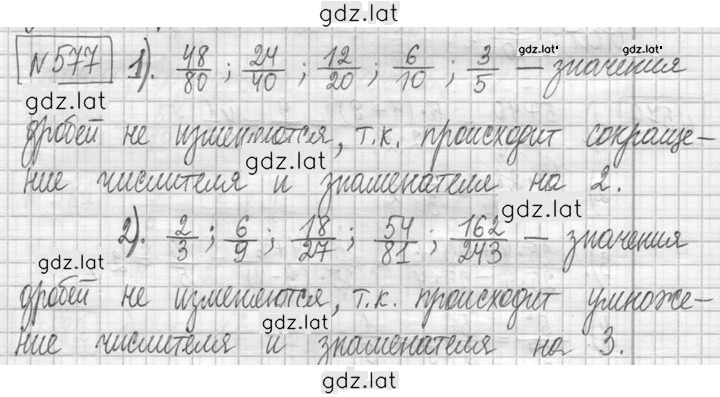 gdz.lat
№577 1). 48/80 ; 24/40 ; 12/20 ; 6/10 ; 3/5 — значения
gdz.lat gdz.lat
gdz.lat
дробей не изменяются, т.к. происходит сокраще-
gdz.lat
ние числителя и знаменателя на 2.
gdz.lat
2). 2/3 ; 6/9 ; 18/27 ; 54/81 ; 162/243 — значения
gdz.lat
дробей не изменяются, т.к. происходит умноже-
gdz.lat
ние числителя и знаменателя на 3.
gdz.lat